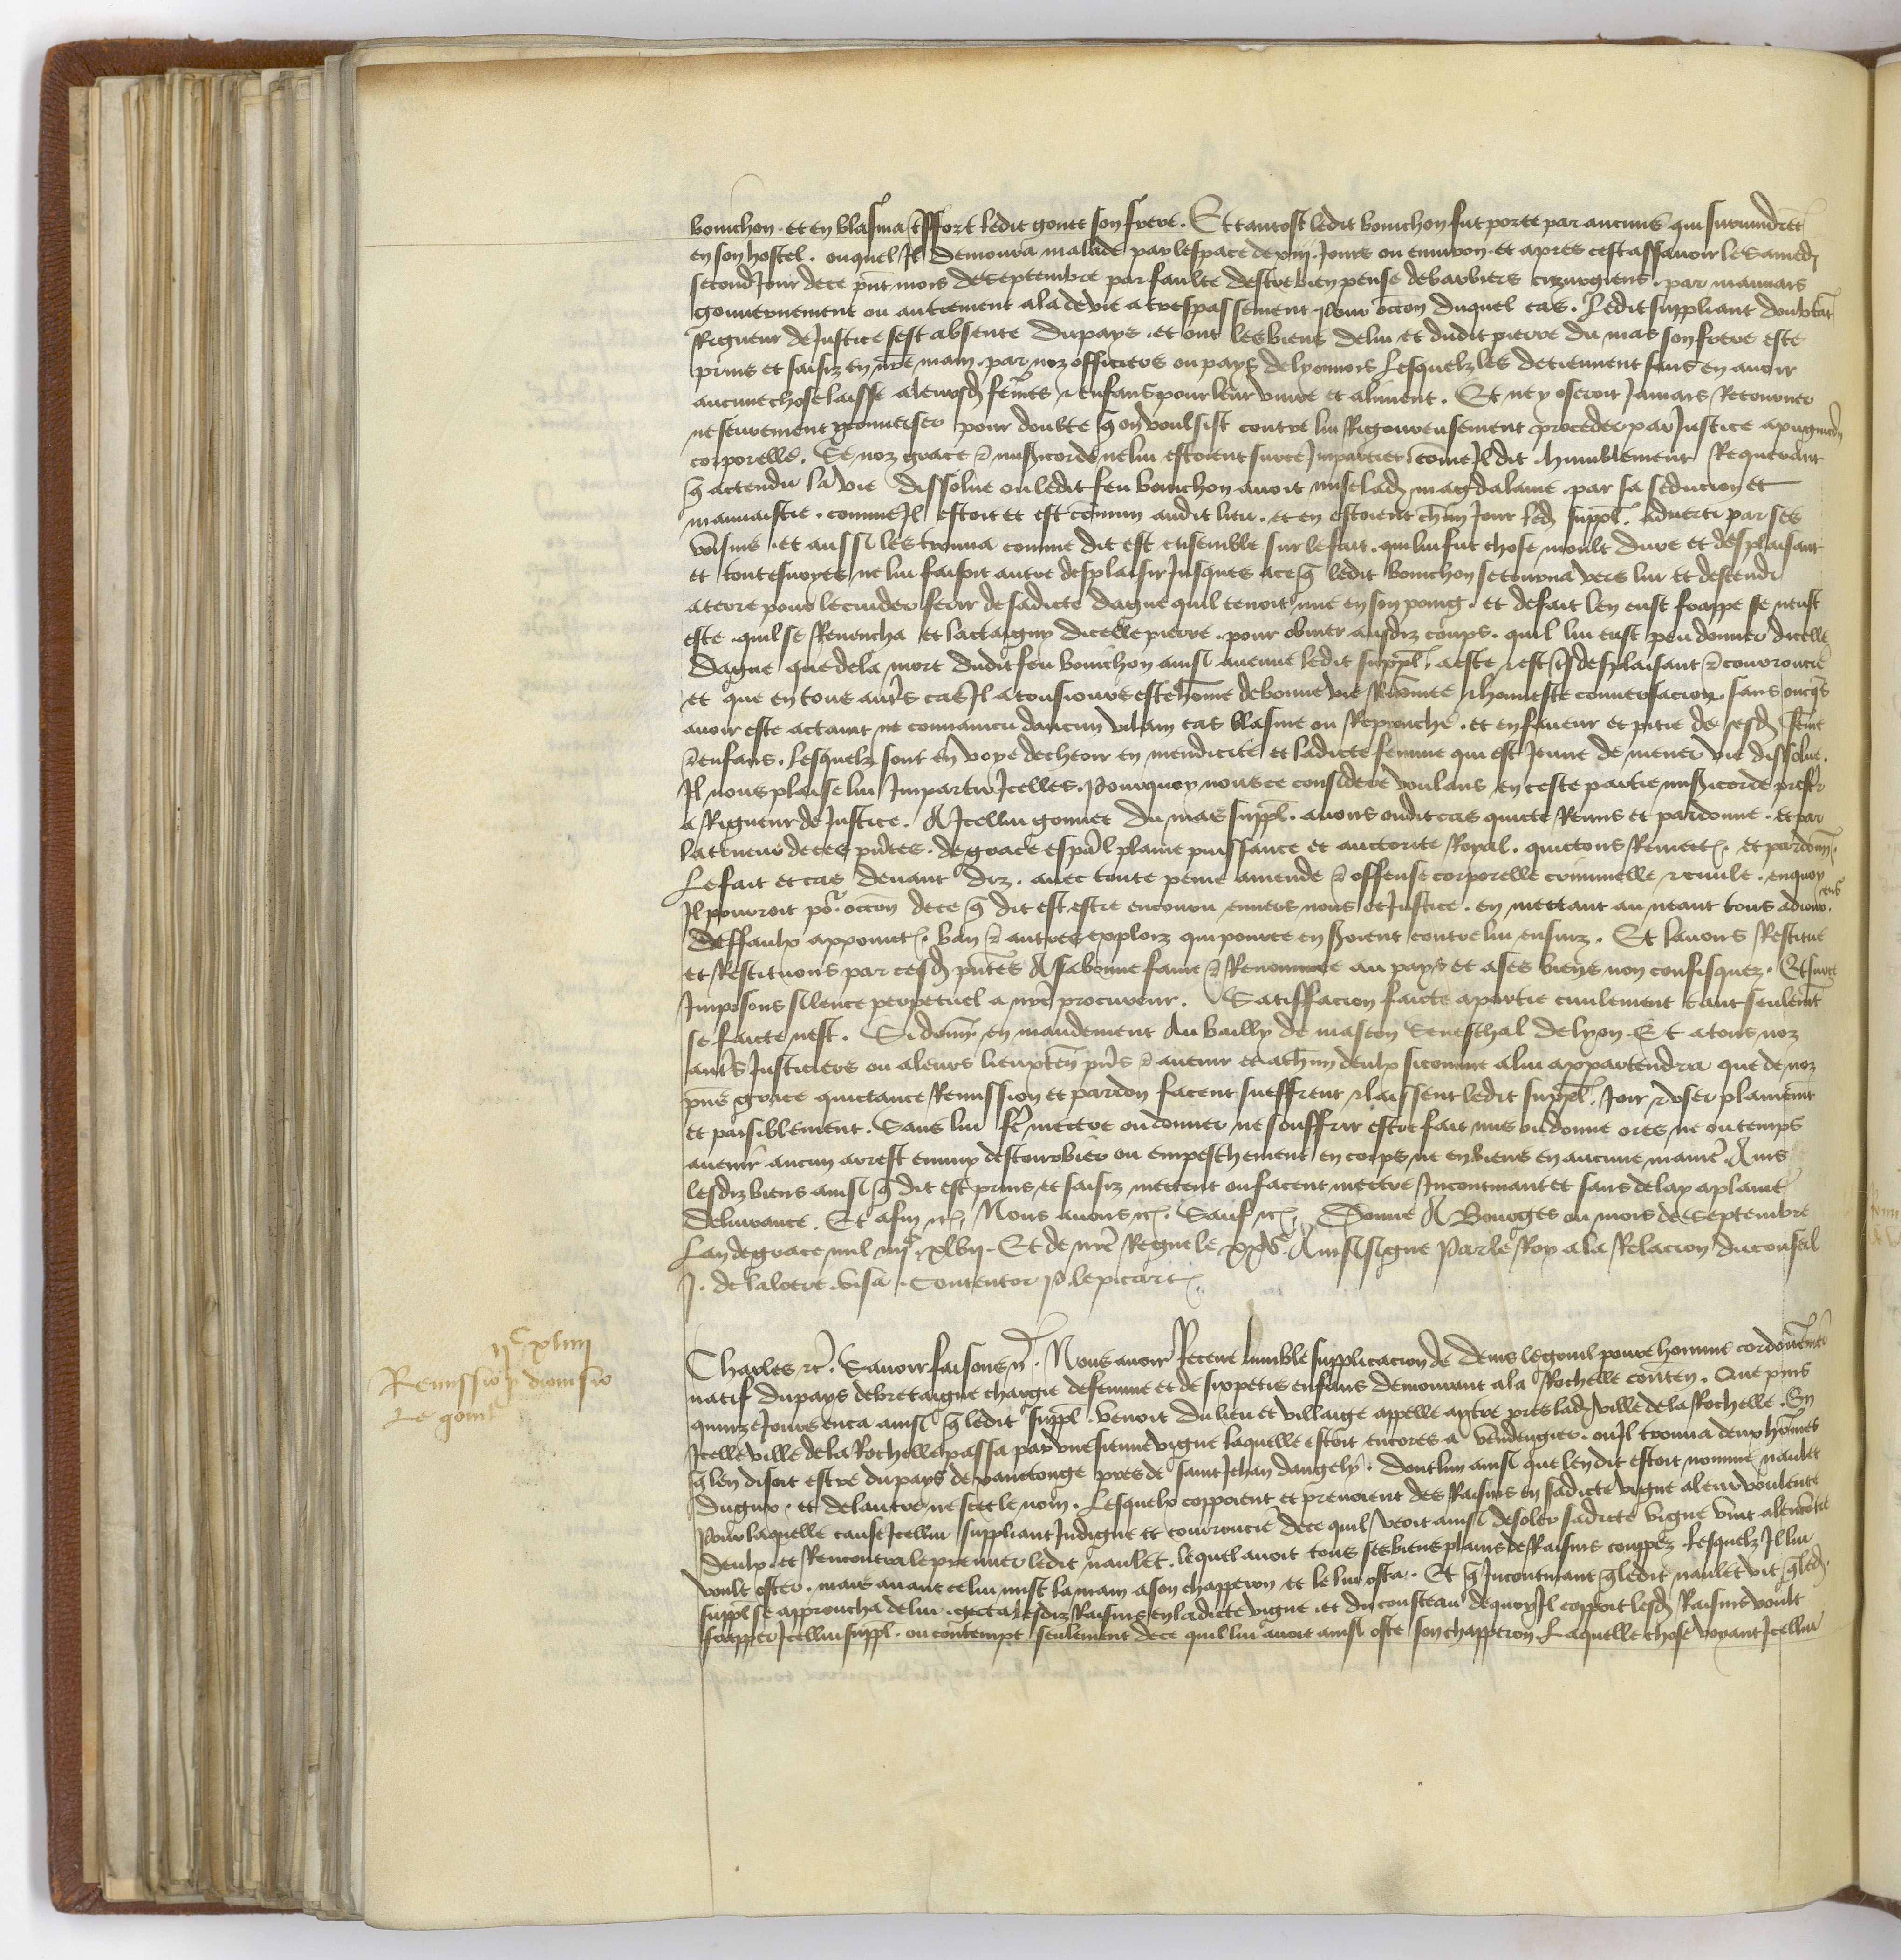 bonichon. et en blasma tresfort ledit gonet son frere. Et tantost ledit bonichon fut porte par aucuns qui survindrent
en son hostel. ouquel Il demoura malade par lespace de xiiij Jours ou environ. et apres cest assavoir le Samedi
second Jour de ce pnt mois de Septembre par faulte destre bien pense de barbiers cirurgiens. par mauvais
gouvernement ou autrement ala de vie a trespassement pour occon duquel cas. Ledit suppliant doubtat
Rigueur de Justice sest absente du pays. et ont les biens de lui et dudit pierre du mas son frere este
prins et saisiz en nre main. par noz officiers ou pays de lyonnois Lesquelz les detiennent sans en avoir
aucune chose laisse a leursd femes et enfans pour leur vivre et aliment. Et ne y oseroit Jamais Retourner
ne seurement converser pour doubte q on voulsist contre lui Rigoureusement proceder par Justice a pugnicon
corporelle. Se noz grace et misicorde ne lui estoient sur ce Imparties come Il dit. humblement Requerant
q actendu la vie dissolue ou ledit feu bonichon avoit mise lad magdalaine. par sa seducion et
mauvaistie. comme Il estoit et est comun audit lieu. et en estoient chun Jour led suppl. adverti par ses
voisins. et aussi les trouva comme dit est ensemble sur le fait. qui lui fut chose moult dure et desplaisant
et toutesvoyes ne lui faisoit autre desplaisir Jusques a ce q ledit bonichon se tourna vers lui et descendi
a terre pour le cuider ferir de sadicte dague quil tenoit nue en son poing. et de fait len eust frappe se neust
este. quil se Revencha et lactaigny dicelle pierre. pour obvier ausdiz coups. quil lui eust peu donner dicelle
dague que de la mort dudit feu bonichon ainsi avenue ledit suppl. a este et est tresdesplaisant et courroucie
et que en tous aut's cas Il a tousiours este home de bonne vie Renomee et honneste conversacion. sans oncqs
avoir este actaint ne convaincu daucun vilain cas blasme ou Reprouche. et en faveur et pitie de sesd feme
et enfans. Lesquelz sont en voye de cheoir en mendicite et ladicte femme qui est Jeune de mener vie dissolue.
Il nous plaise lui Impartir Icelles. Pourquoy nous ce considere voulans en ceste partie misicorde prefer
a Rigueur de Justice. A Icellui gonnet du mas suppl. avons oudit cas quicte Remis et pardonne. et par
la teneur de ces pntes. de grace especial plaine puissance et auctorite Royal. quictons Remect. et pardon.
Le fait et cas devant diz. avec toute peine amende et offense corporelle criminelle et civile. en quoy
Il pourroit por occon de ce q dit est. estre encouru envers nous et Justice. en mettant au neant tous adiour.ens
deffaulx appoinct. ban et autres exploiz qui pour ce en seroient contre lui ensuiz. Et lavons Restitue
et Restituons par cesd pntes A sa bonne fame et Renommee au pays et a ses biens non confisquez. Et sur ce
Imposons silence perpetuel a nre procureur. Satiffacion faicte a partie civilement tant seulemt
se faicte nest. Si donn. en mandement Au bailly de mascon Seneschal de lyon. Et a tous noz
autrs Justiciers ou a leurs lieuxten pns et avenir et a chun deulx si comme a lui appartendra que de noz
pns grace quictance Remission et pardon facent sueffrent et laissent ledit suppl. Joir et user plainemt
et paisiblement. Sans lui fe mettre ou donner ne souffrir estre fait mis ou donne ores ne ou temps
avenir aucun arrest ennuy destourbier ou empeschement en corps ne en biens en aucune manie. Ains
lesdiz biens ainsi q dit est prins et saisiz mettent ou facent mettre Incontinant et sans delay a plaine
delivrance. Et afin etc. Nous avons etc. Sauf etc. Donne A Bourges ou mois de Septembre
Lan de grace mil iiijc xlvij. Et de nre Regne le xxve. Ainsi signe Par le Roy a la Relacion du conseil
J. de laloere. visa. Contentor P. le picart.
ijc xliiij
Remissio p dionisio
Le gouil
Charles etc. Savoir faisons etc. Nous avoir Receue lumble supplicacion de denis le gouil povre homme cordouennier
natif du pays de bretaigne chargie de femme et de six petis enfans demourant a la Rochelle conten. Que puis
quinze Jours enca ainsi q ledit suppl. venoit du lieu et villaige appelle aytre pres lad ville de la Rochelle. En
Icelle ville de la Rochelle passa par une sienne vigne laquelle estoit encores a vendengier. ou Il trouva deux homes
q len disoit estre du pays de xanctonge pres de saint Jehan dangely. dont lun ainsi que len dit estoit nomme naulet
duguy. et de lautre ne scet le nom. Lesquelx coppoient et prenoient des Raisins en sadicte vigne a leur voulente
Pour laquelle cause Icellui suppliant Indigne et courroucie de ce quil veoit ainsi desoler sadicte vigne vint a lencontre
deulx. et Rencontra le premier ledit naulet. lequel avoit tous ses biens plains de Raisins couppez. Lesquelz Il lui
voult oster. mais avant ce lui mist la main a son chapperon et le lui osta. Et q Incontinant q ledit naulet vit q led
suppl se approucha de lui. gecta lesdiz Raisins en ladicte vigne. et du cousteau de quoy Il coppoit lesd Raisins voult
frapper Icellui suppl. ou contempt seulement de ce quil lui avoit ainsi oste son chapperon. Laquelle chose voyant Icellui